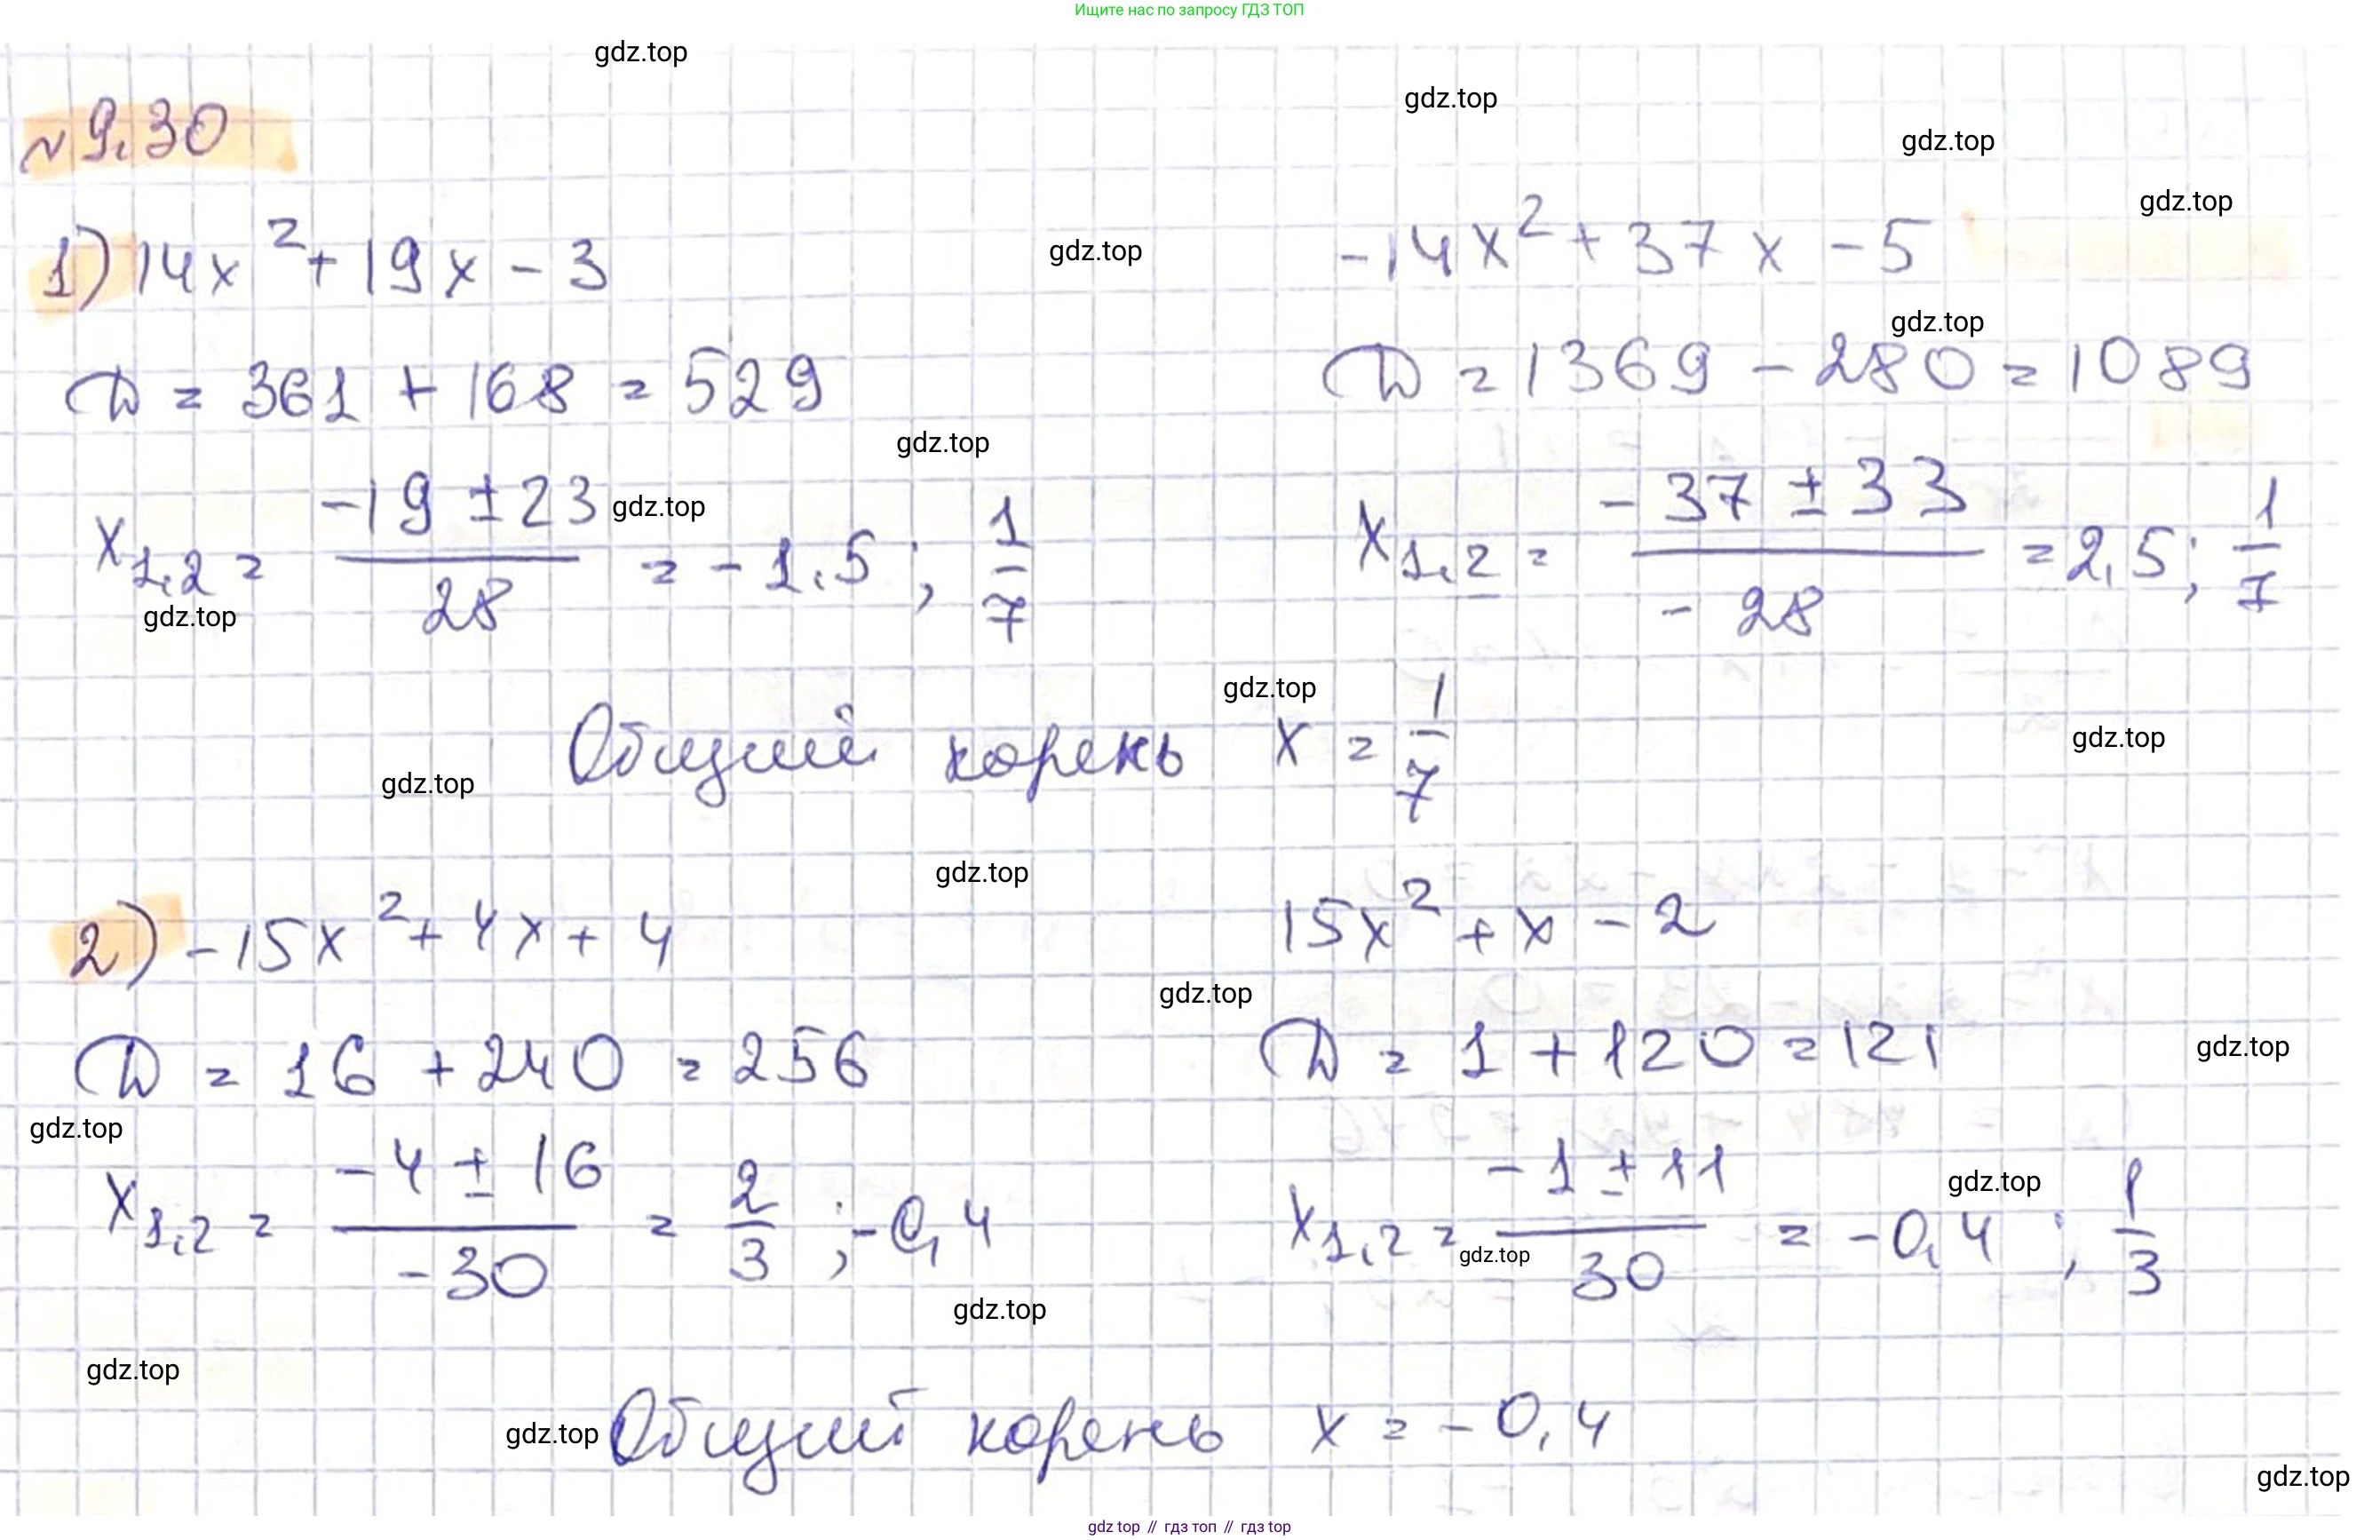 Ищите нас по запросу ГДЗ ТОП
gdz.top
gdz.top
№ 9.30
gdz.top
gdz.top
1) 14x² + 19x - 3
gdz.top
-14x² + 37x - 5
gdz.top
D = 361 + 168 = 529
D = 1369 - 280 = 1089
gdz.top
x1,2 = (-19 ± 23)/28 = -1.5; 1/7
gdz.top
x1,2 = (-37 ± 33)/(-28) = 2,5; 1/7
gdz.top
gdz.top
Общий корень x = 1/7
gdz.top
gdz.top
gdz.top
2) -15x² + 4x + 4
15x² + x - 2
gdz.top
D = 16 + 240 = 256
D = 1 + 120 = 121
gdz.top
gdz.top
x1,2 = (-4 ± 16)/(-30) = 2/3; -0,4
x1,2 = (-1 ± 11)/30 = -0,4; 1/3
gdz.top
gdz.top
gdz.top
gdz.top
gdz.top
Общий корень x = -0,4
gdz.top
gdz top // гдз топ // гдз top